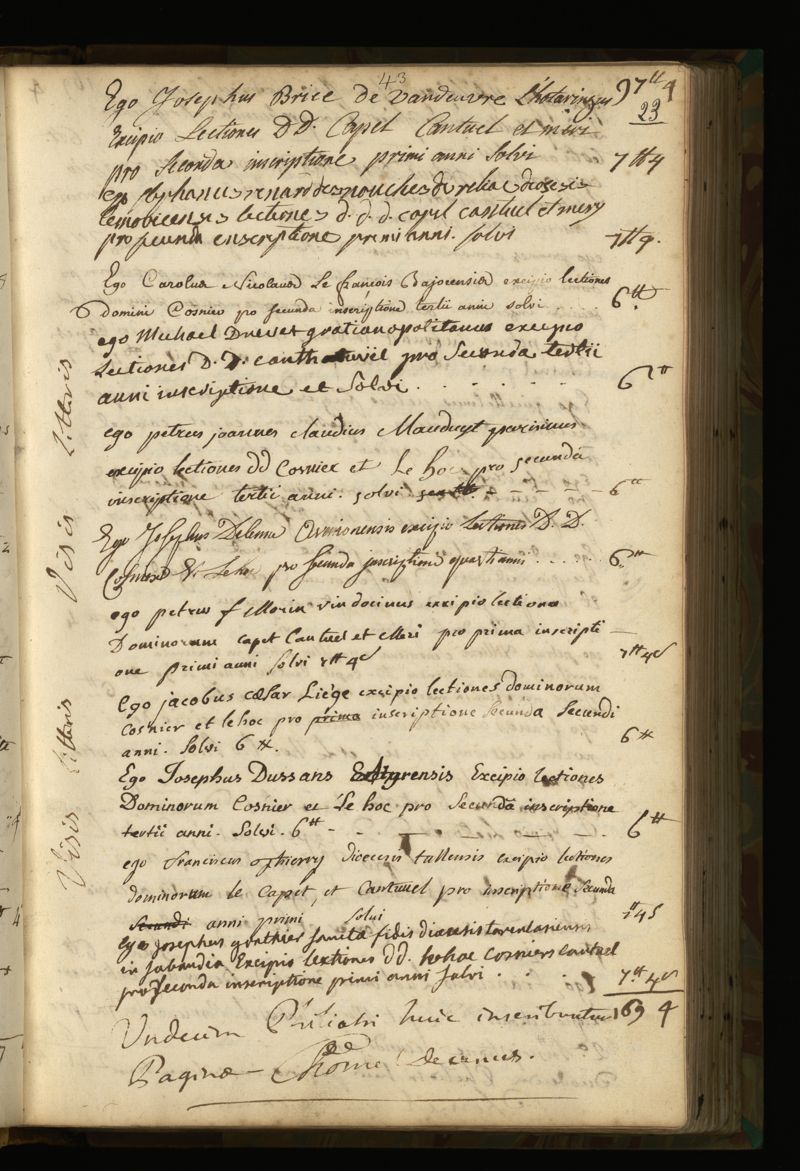 43
Ego Josephus Brice de Vandeuvre Lhotaringus 97tt 4
23
Excipio Lectiones DD. Capet Cantuel et meri
pro Secunda inscriptione primi anni Solvi 7tt4
ego Stephanus renard desmouches de diocesis
lemovicensis lectiones d.d.d. capet cantuel et mery
pro secunda enscriptione primi anni. solvi 7tt9.
Ego Carolus Nicolaus Le françois Bajocensis excipio lectiones
Domini Cosnier pro secunda inscriptione tertii anni solvi . . 6tt.
ego Michael Drevet gratianopolitanus excipio
Lectiones D. D. pro Secunda tertii
anni inscriptione et Solvi . . . . . . 6tt
ego petrus joannes claudius Mauduyt parisinus
excipio lectiones dd Cosnier et Le hoc pro secunda
inscriptione tertii anni. solvi - - - - - 6tt
Ego Josephus Delenne Avenionensis excipio Lectiones D. D.
Cosnier & Lehoc pro secunda inscriptione quarti anni . . . . . 6tt
ego petrus f Morin vindocinus excipio lectiones
Dominorum capet Cantuel et Meri pro prima inscripti-
one primi anni Solvi 7tt 4s 7tt 4s
Ego jacobus cæsar Liége excipio lectiones dominorum
cosnier et lehoc pro prima inscriptione Secunda Secundi
anni. Solvi 6 tt. 6 tt
Ego Josephus Dussans Excipio lectiones
Dominorum Cosnier et Le hoc pro Secunda inscriptione
tertii anni. Solvi. 6tt - - - - 6tt
ego franciscus thierry diocesis tullensis excipio lectiones
dominorum le Capet, et Cantuel pro inscriptione Secunda
Secundi anni primi solvi 7tt4s
ego josephus gonthier sanctæ fidis diœcesis tarentasiensis
in sabaudia Excipio lectiones dd. lehoc cosniers cantuel
pro secunda inscriptione primi anni solvi . . . . 7tt 4s
Undecim huic inscribuntur 169 4
Paginæ - Thome Decanus.
Visis litteris
Visis litteris